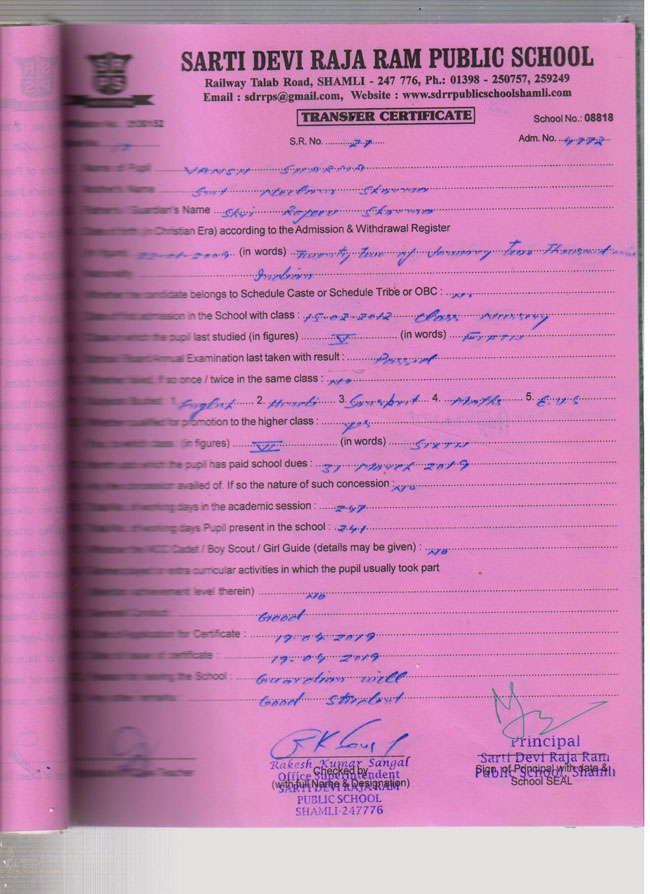 SARTI DEVI RAJA RAM PUBLIC SCHOOL
Railway Talab Road, SHAMLI - 247 776, Ph.: 01398 - 250757, 259249
Email : sdrrps@gmail.com, Website : www.sdrrpublicschoolshamli.com
TRANSFER CERTIFICATE
School No.: 08818
S.R. No. 27
Adm. No. 4772
Name of Pupil VANSH SHARMA
Mother's Name Smt Sharma
Guardian's Name Shri Rajeev Sharma
(in Christian Era) according to the Admission & Withdrawal Register
22-01-2009 (in words) Twenty two of January two Thousand nine
Indian
Whether the candidate belongs to Schedule Caste or Schedule Tribe or OBC : No
admission in the School with class : 15-02-2012 Class Nursery
Class in which the pupil last studied (in figures) V (in words) FIFTH
Annual Examination last taken with result : Passed
if so once / twice in the same class : No
1. English 2. Hindi 3. Sanskrit 4. Maths 5. E.V.S
Whether qualified for promotion to the higher class : yes
(in figures) VI (in words) Sixth
which the pupil has paid school dues : 31 March 2019
concession availed of. If so the nature of such concession : No
working days in the academic session : 247
working days Pupil present in the school : 241
Whether the NCC Cadet / Boy Scout / Girl Guide (details may be given) : No
extra curricular activities in which the pupil usually took part
achievement level therein) No
General Conduct Good
Date of Application for Certificate : 19.04.2019
Date of issue of certificate : 19.04.2019
leaving the School : Guardian will
remarks : Good Student
Teacher
Rakesh Kumar Sangal
Office Superintendent
Checked by
(with full Name & Designation)
SARTI DEVI RAJA RAM
PUBLIC SCHOOL
SHAMLI-247776
Principal
Sarti Devi Raja Ram
Public School, Shamli
Sign. of Principal with date &
School SEAL